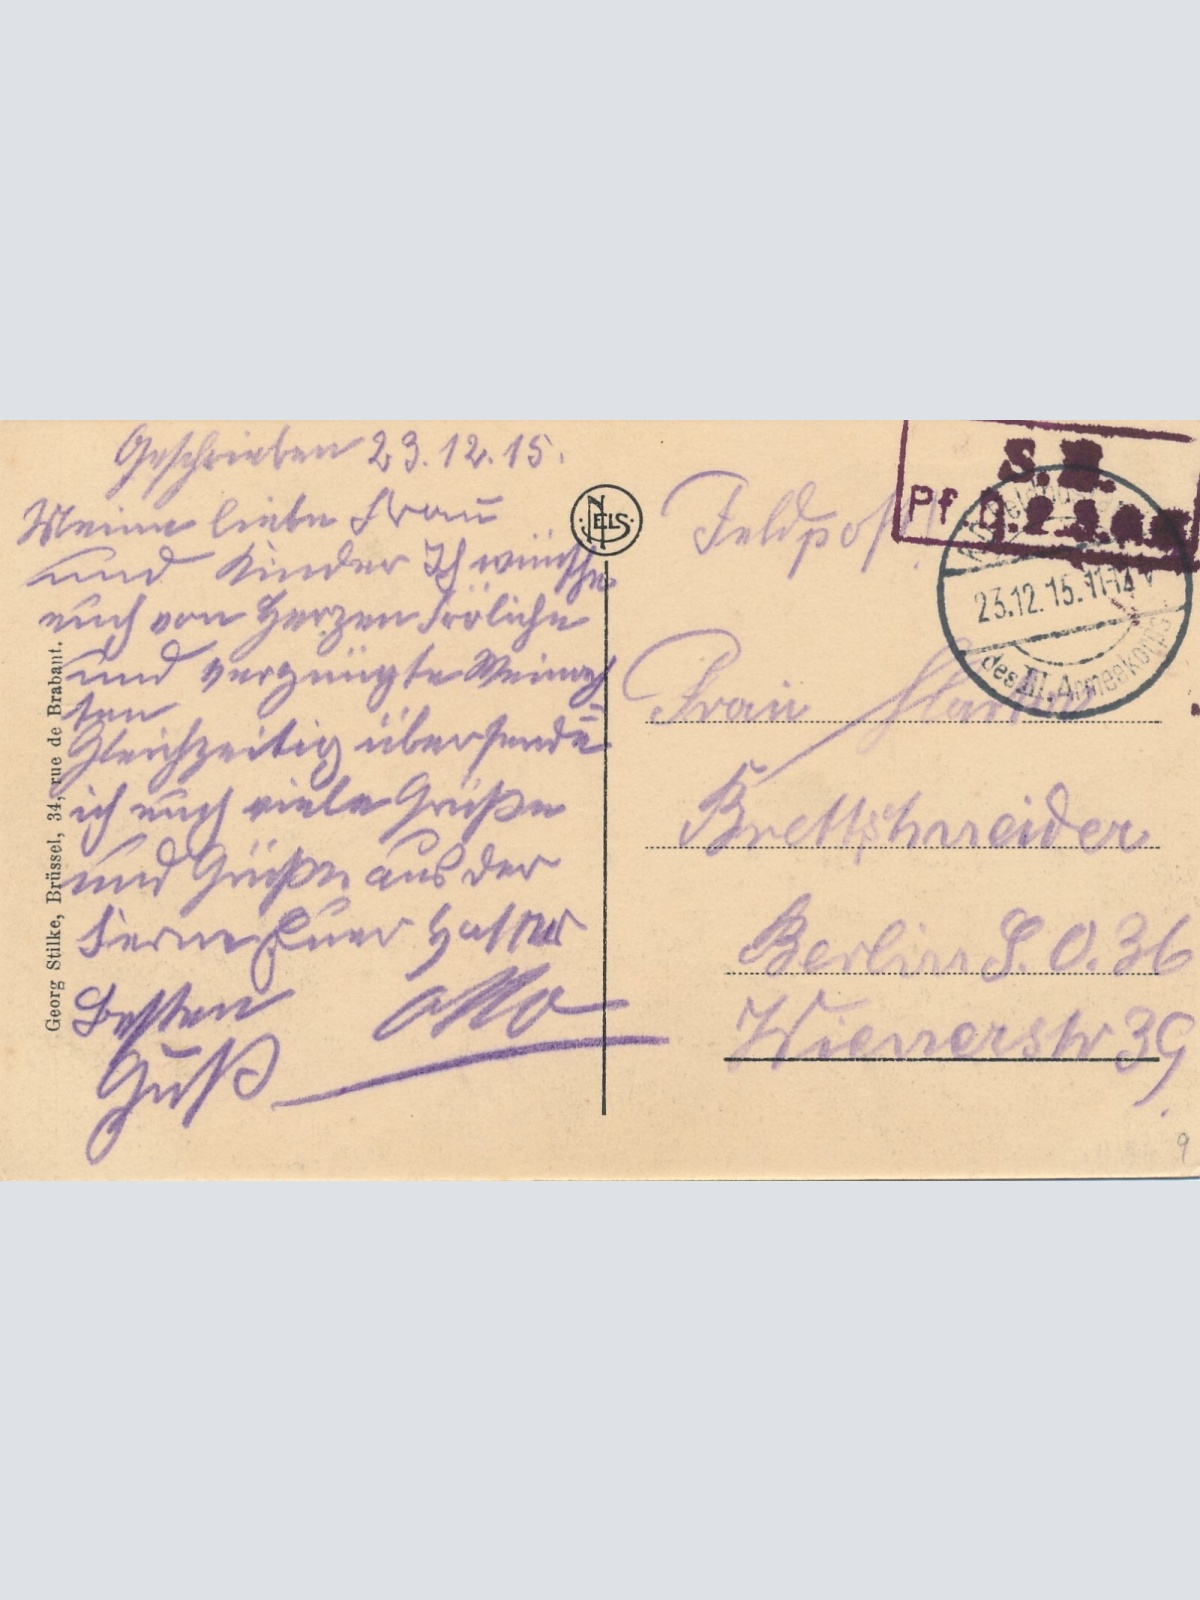 Geschrieben 23.12.15.
Meine liebe Frau
und Kinder Ich wünsche
euch von Herzen Fröliche
und vergnügte Weinach
ten
Gleichzeitig übersende
ich euch viele Grüße
und Güße aus der
Ferne Euer
Besten Otto
Guß
Georg Stilke, Brüssel, 34, rue de Brabant.
NELS
Feldpost!
S.B.
Pf.
23.12.15.11-12 V
des III. Armeekorps
Frau
Brettschneider
Berlin S.O. 36
Wienerstr 39
9